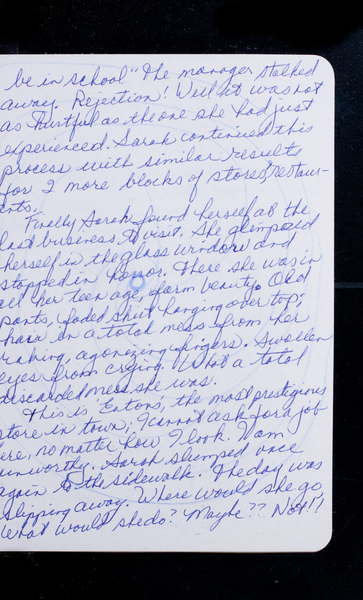 be in school" The manager stalked
away. Rejection! Well it was not
as hurtful as the one she had just
experienced. Sarah continued this
process with similar results
for 2 more blocks of stores, restaur-
ants.
Finally Sarah found herself at the
last business to visit. She glimpsed
herself in the glass window and
stopped in horror. There she was in
all her teen age, farm beauty. Old
pants, faded shirt hanging over top;
hair in a total mess from her
raking, agonizing fingers. Swollen
eyes from crying. What a total
discarded mess she was.
This is Eatons', the most prestigious
store in town; I cannot ask for a job
ere, no matter how I look. I am
unworthy. Sarah slumped once
again to the sidewalk. The day was
slipping away. Where would she go
What would she do? Maybe?? No!!